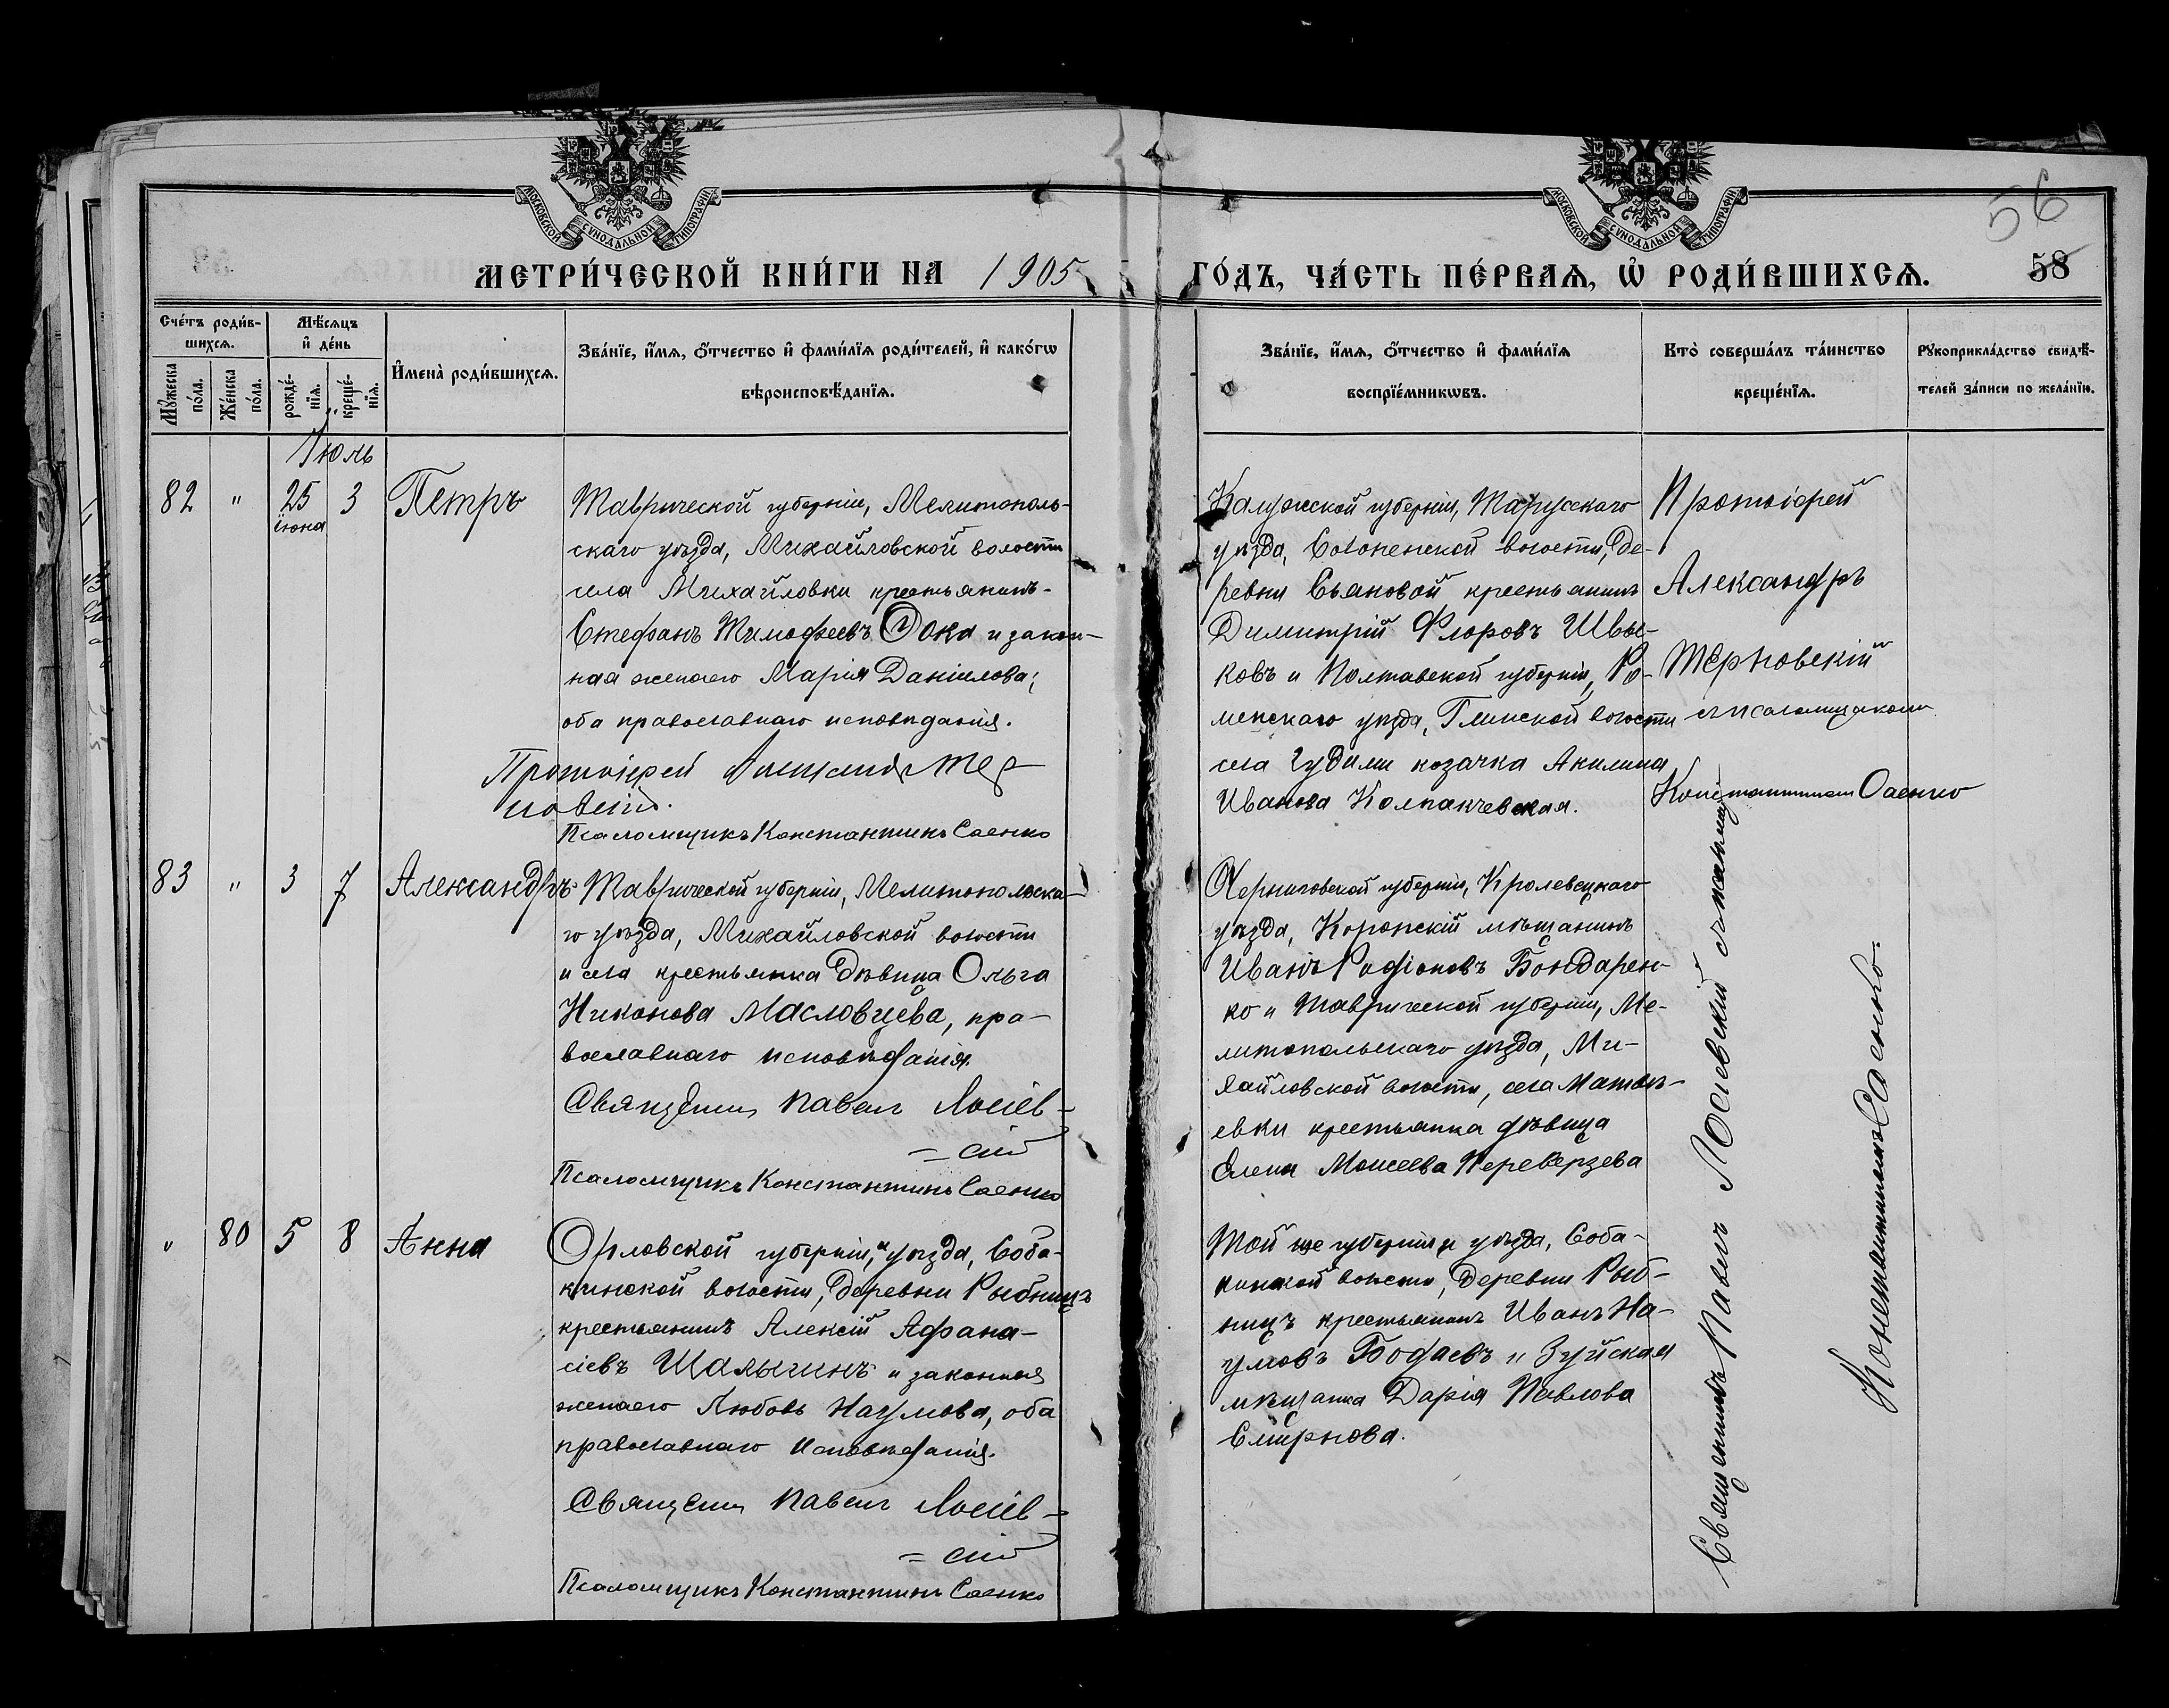 МОСКОВСКОЙ СУНОДАЛЬНОЙ ТИПОГРАФІИ
МОСКОВСКОЙ СУНОДАЛЬНОЙ ТИПОГРАФІИ
56
58
МЕТРИ́ЧЕСКОЙ КНИ́ГИ НА 1905
ГО́ДЪ, ЧА́СТЬ ПЕ́РВАѦ, Ѡ҆ РОДИ́ВШИХСѦ.
Сче́тъ роди́в-
шихсѧ.
Мꙋ́жеска по́ла.
Же́нска по́ла.
Мѣ́сѧцъ
и҆ де́нь
рожде́-
нїѧ.
креще́-
нїѧ.
И҆мена̀ роди́вшихсѧ.
Зва́нїе, и҆́мѧ, ѻ҆́тчество и҆ фами́лїѧ роди́телей, и҆ како́гѡ
вѣроисповѣ́данїѧ.
Зва́нїе, и҆́мѧ, ѻ҆́тчество и҆ фами́лїѧ
воспрїе́мникѡвъ.
Кто̀ соверша́лъ та́инство
креще́нїѧ.
Рꙋкоприкла́дство свидѣ́-
телей за́писи по жела́нїю.
Іюль
82 " 25 3 Петръ
іюня
Таврической губерніи, Мелитополь-
скаго уѣзда, Михайловской волости
села Михайловки крестьянинъ
Стефанъ Тимофеевъ Дока и закон-
ная жена его Марія Даніилова;
оба православнаго исповѣданія.
Протоіерей Александр Тер-
новскій.
Псаломщикъ Константинъ Саенко
Калужской губерніи, Тарусскаго
уѣзда, волости, де-
ревни Сьяновой крестьянинъ
Димитрій Флоровъ Швы-
ковъ и Полтавской губерніи, Ро-
менскаго уѣзда, Глинской волости
села козачка Акилина
Иванова Колпакчевская.
Протоіерей
Александръ
Терновскій
съ псаломщикомъ
Константиномъ Саенко
83 " 3 7 Александръ
Таврической губерніи, Мелитопольска-
го уѣзда, Михайловской волости
и села крестьянка дѣвица Ольга
Никонова Масловцева, пра-
вославнаго исповѣданія.
Священн Павелъ Лосіев-
=скій
Псаломщикъ Константинъ Саенко
Черниговской губерніи, Кролевецкаго
уѣзда, Коропскій мѣщанинъ
Иванъ Родіоновъ Бондарен-
ко и Таврической губерніи, Ме-
литопольскаго уѣзда, Ми-
хайловской волости, села Матвѣ-
евки крестьянка дѣвица
Елена Моисеева Переверзева
" 80 5 8 Анна
Орловской губерніи, и уѣзда, Соба-
кинской волости, деревни Рыбницъ
крестьянинъ Алексій Афана-
сіевъ Шалыгинъ и законная
жена его Любовь Наумова, оба
православнаго исповѣданія.
Священн Павелъ Лосіев-
=скій
Псаломщикъ Константинъ Саенко
Той же губерніи и уѣзда, Соба-
кинской волости, деревни Рыб-
ницъ крестьянинъ Иванъ На-
умовъ Бодаевъ и Зуйская
мѣщанка Дарія Павлова
Смирнова.
Священникъ Павелъ Лосіевскій съ псаломщ
Константиномъ Саенко.